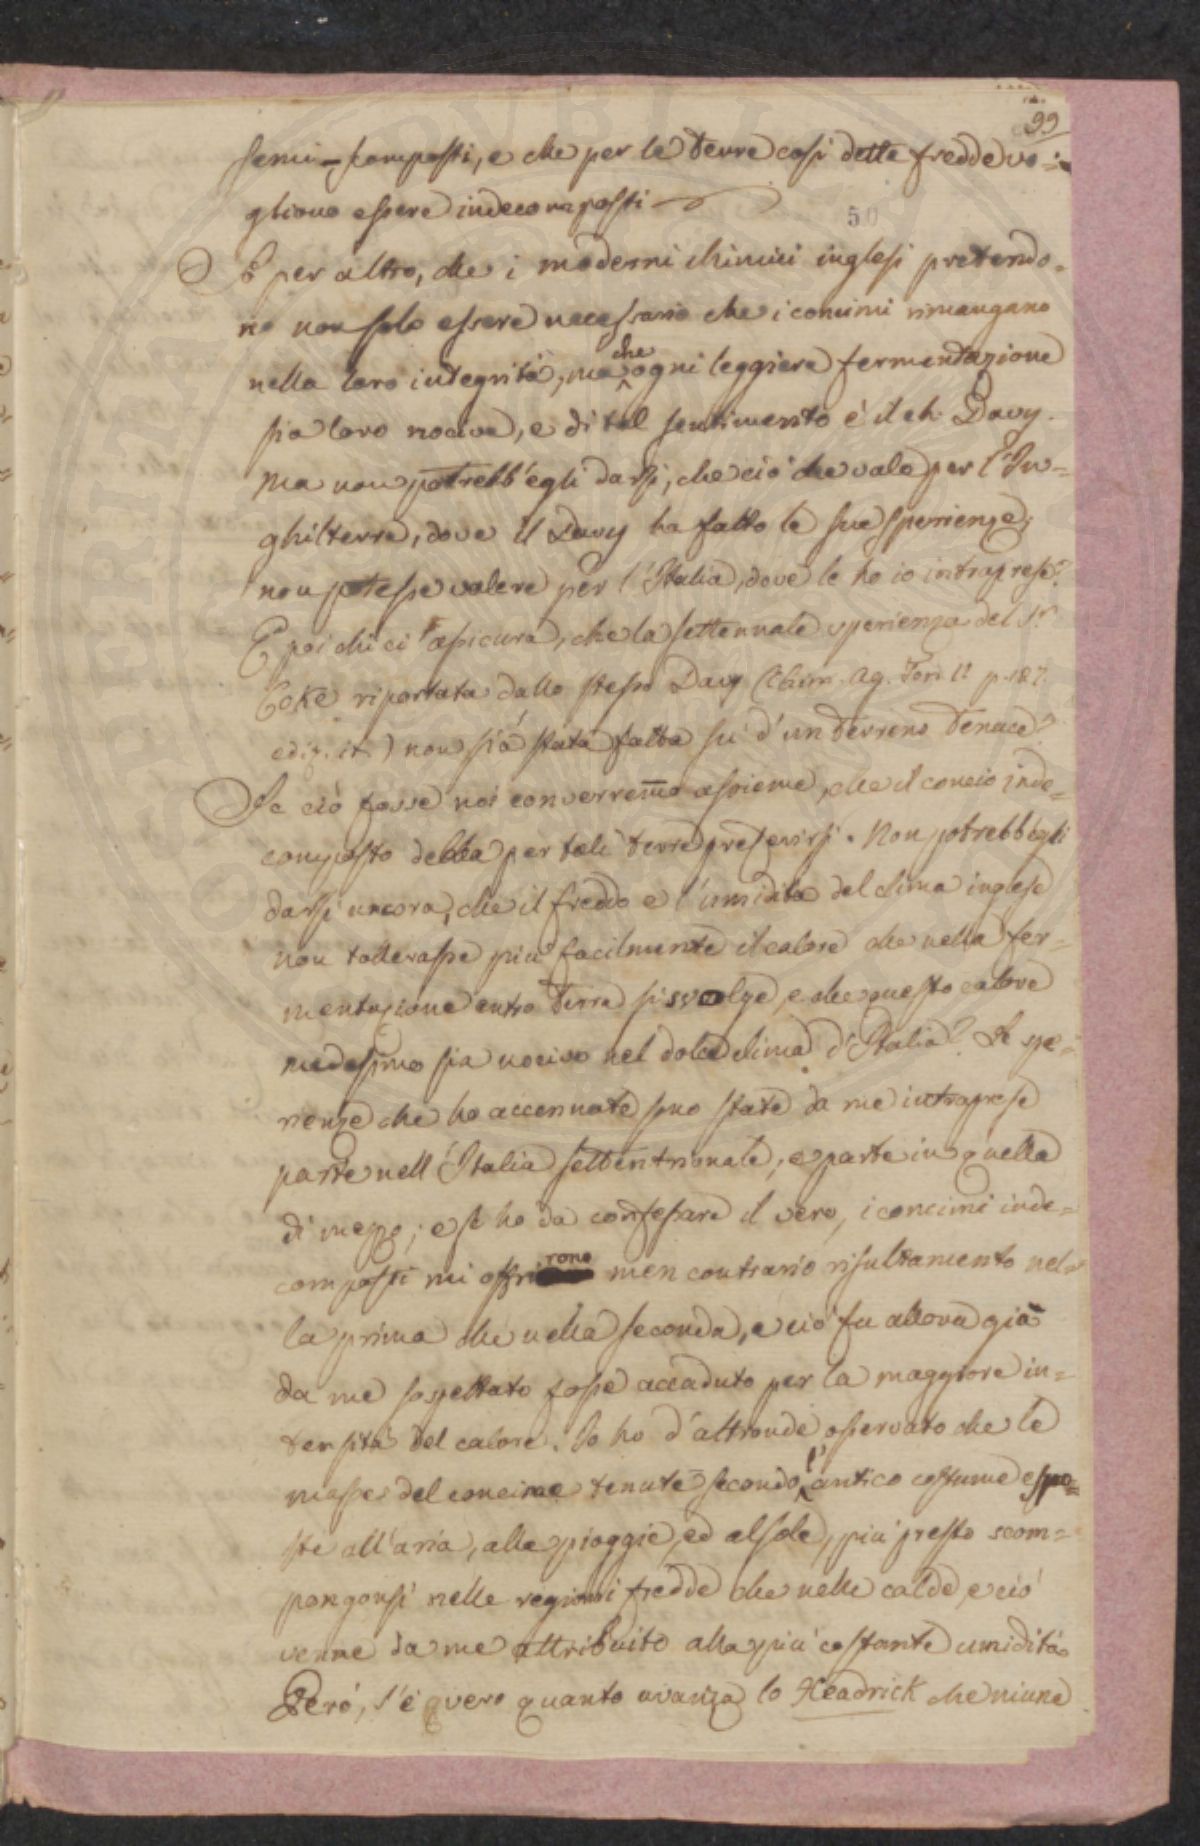 99
semi-scomposti, e che per le terre così dette fredde vo=
gliono essere indecomposti
50
È per altro, che i moderni chimici inglesi pretendo=
no non solo essere necessario che i concimi rimangano
nella loro integrità, ma che ogni leggiera fermentazione
sia loro nociva, e di tal sentimento è il ch. Davy.
Ma non potrebb'egli darsi, che ciò che vale per l'In=
ghilterra, dove il Davy ha fatto le sue sperienze,
non potesse valere per l'Italia, dove le ho io intraprese?
E poi chi ci assicura, che la settennale sperienza del Sr
Coke riportata dallo stesso Davy (Chim. ag. Tom. II p. 187.
ediz. it.) non sia stata fatta su d'un terreno tenace?
Se ciò fosse noi converremo assieme, che il concio inde=
composto debba per tali terre preferirsi. Non potrebb'egli
darsi ancora, che il freddo e l'umidità del clima inglese
non tollerasse più facilmente il calore che nella fer=
mentazione entro terra si svolge, e che questo calore
medesimo sia nocivo nel dolce clima d'Italia? Le spe=
rienze che ho accennate sono state da me intraprese
parte nell'Italia settentrionale, e parte in quella
di mezzo; e se ho da confessare il vero, i concimi inde=
composti mi offrirono men contrario risultamento nel=
la prima che nella seconda, e ciò fu allora già
da me sospettato fosse accaduto per la maggiore in=
tensità del calore. Io ho d'altronde osservato che le
masse del concime tenute secondo l'antico costume espo=
ste all'aria, alle pioggie, ed al sole, più presto scom=
pongonsi nelle regioni fredde che nelle calde, e ciò
venne da me attribuito alla più costante umidità.
Però, s'è vero quanto avanza lo Headrick che niuna